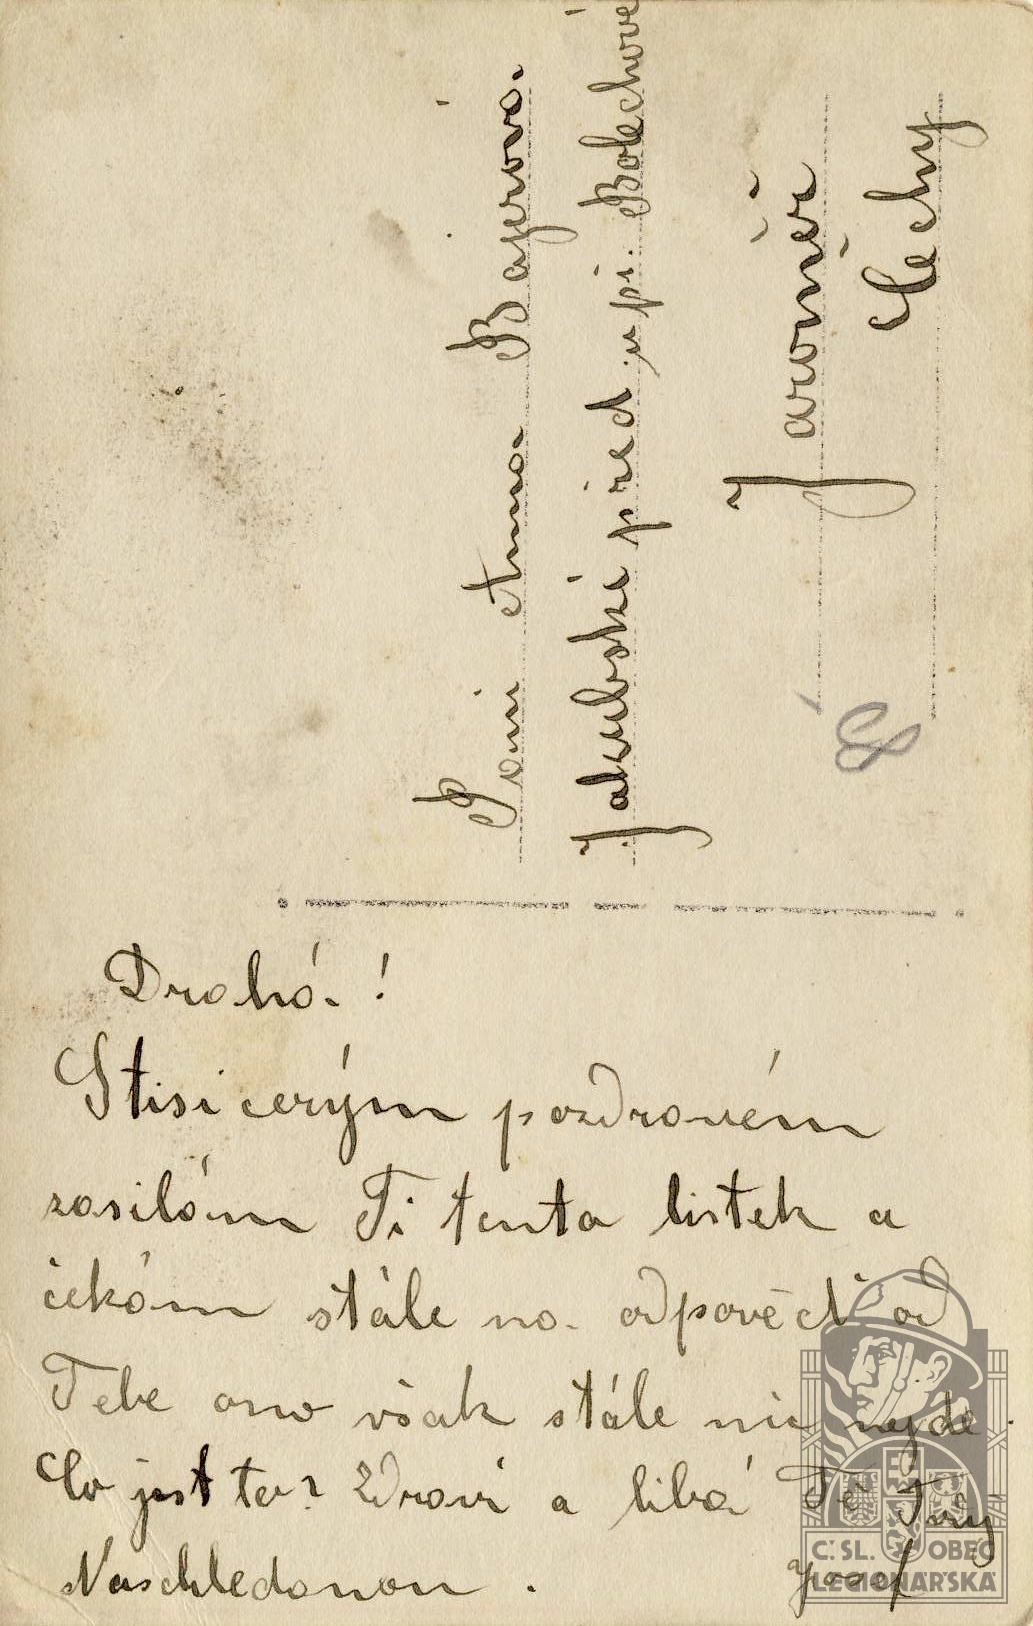 Paní Anna Bajerová.
Jakubské před. u pí. Bolechové
Jaroměř
Čechy
8
Drahá!
S tisicerým pozdravém
zasilám Ti tento listek a
čekám stále na odpověď od
Tebe ono však stále nic nejde.
Co jest to? Zdraví a libá Tě Tvůj
Naschledanou.
Josef
Č. SL. OBEC
LEGIONÁŘSKÁ